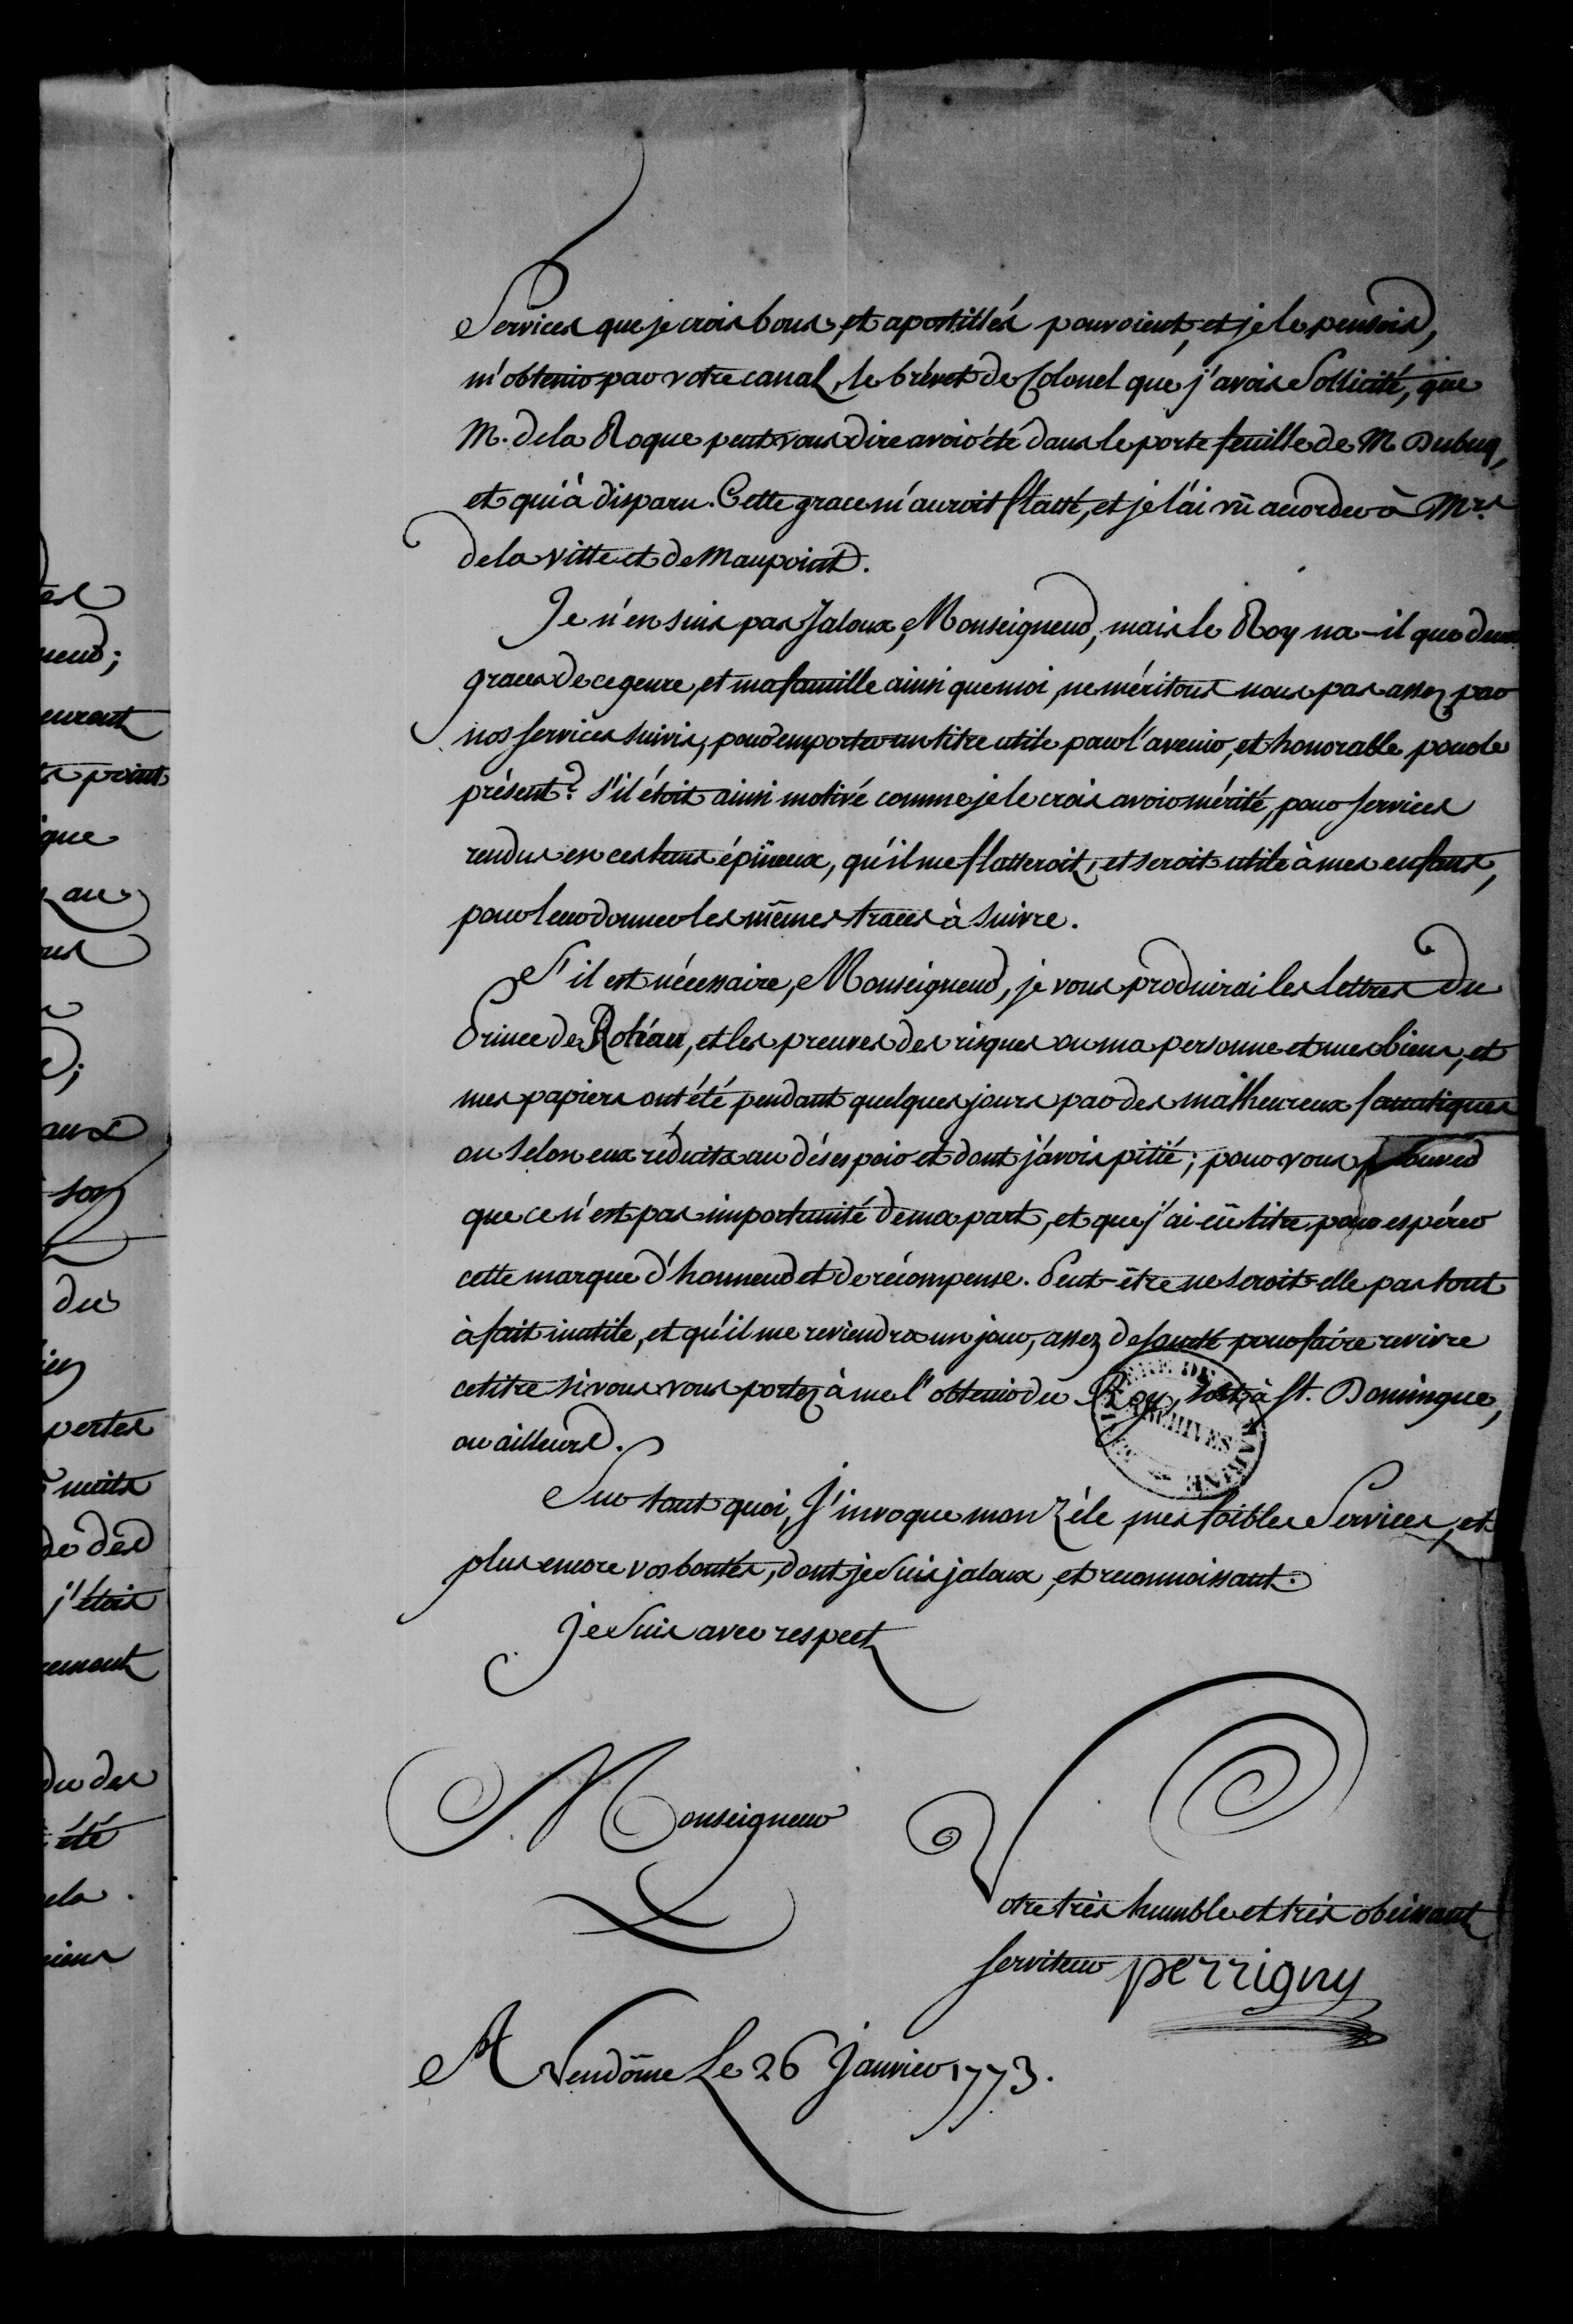 Services que je crois bons, et apostillés pouvoient, et je le pensois,
m'obtenir par votre canal, le brévet de Colonel que j'avois Sollicité, que
M. de la Roque peut vous dire avoir été dans le porte feuille de M. Dubuq,
et qui à disparu. Cette grace m'auroit flatté, et je l'ai vû accorder à Mrs
de la vitte et de Maupoint.
Je n'en suis pas Jaloux, Monseigneur, mais le Roy na-il que deux
graces de ce genre, et ma famille ainsi que moi, ne méritons nous pas assez par
nos services suivis, pour emporter un titre utile pour l'avenir, et honorable pour le
présent? S'il étoit ainsi motivé comme je le crois avoir mérité, pour services
rendus en ces tems épineux, qu'il me flatteroit, et seroit utile à mes enfans,
pour leur donner les mêmes traces à suivre.
S'il est nécessaire, Monseigneur, je vous produirai les lettres Du
Prince de Rohan, et les preuves des risques ou ma personne et mes biens, et
mes papiers ont été pendant quelques jours par des malheureux fanatiques
ou selon eux réduits au désespoir et dont j'avois pitié; pour vous prouver
que ce n'est pas importunité de ma part, et que j'ai eû titre pour espérer
cette marque d'honneur et de récompense. Peut-être ne seroit-elle pas tout
à fait inutile, et qu'il me reviendra un jour, assez de santé pour faire revivre
ce titre si vous vous portez à me l'obtenir du Roy, soit à St. Domingue,
ou ailleurs.
Sur tout quoi, J'invoque mon Zéle mes foibles Services, et
plus encore vos bontés, dont je suis jaloux, et reconnoissant.
Je suis avec respect
Monseigneur
Votre très humble et très obeissant
serviteur perrigny
A Vendôme Le 26 Janvier 1773.
ARCHIVES
MARINE